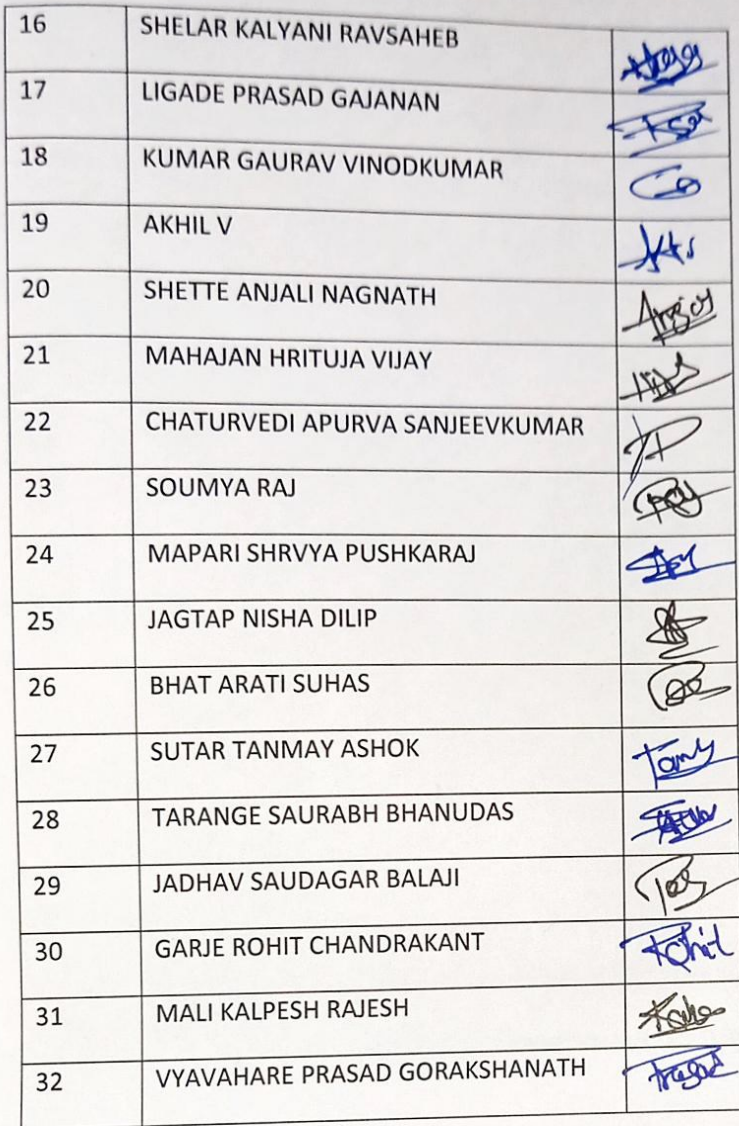 16 SHELAR KALYANI RAVSAHEB
17 LIGADE PRASAD GAJANAN
18 KUMAR GAURAV VINODKUMAR
19 AKHIL V
20 SHETTE ANJALI NAGNATH
21 MAHAJAN HRITUJA VIJAY
22 CHATURVEDI APURVA SANJEEVKUMAR
23 SOUMYA RAJ
24 MAPARI SHRVYA PUSHKARAJ
25 JAGTAP NISHA DILIP
26 BHAT ARATI SUHAS
27 SUTAR TANMAY ASHOK
28 TARANGE SAURABH BHANUDAS
29 JADHAV SAUDAGAR BALAJI
30 GARJE ROHIT CHANDRAKANT Rohit
31 MALI KALPESH RAJESH
32 VYAVAHARE PRASAD GORAKSHANATH Prasad